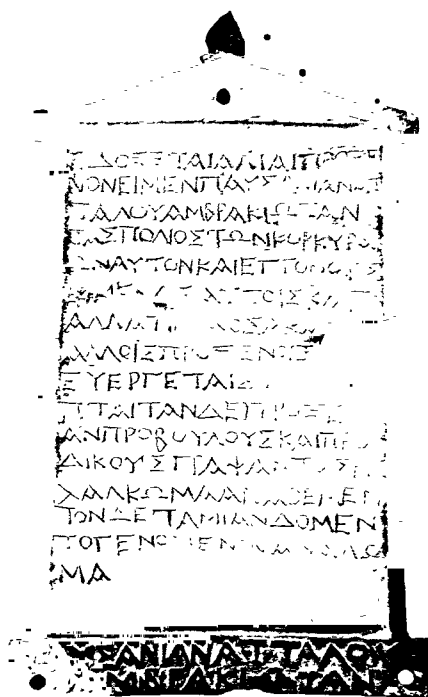 ΕΔΟΞΕΤΑΙΑΛΙΑΙΠΡΟΞΕ
ΝΟΝΕΙΜΕΝΠΑΥΣΑΝΙΑΝΑΤ
ΤΑΛΟΥΑΜΒΡΑΚΙΩΤΑΝ
ΤΑΣΠΟΛΙΟΣΤΩΝΚΟΡΚΥΡΑΙ
ΩΝΑΥΤΟΝΚΑΙΕΓΓΟΝΟΥΣ
ΑΥΤΟΙΣΚΑΙΤΑ
ΑΛΛΑΤΙΜΙΑΟΣΑ
ΑΛΛΟΙΣΠΡΟΞΕΝΟΙΣ
ΕΥΕΡΓΕΤΑΙΣ
ΠΤΑΙΤΑΝΔΕΠΡΟΞΕΝΙ
ΑΝΠΡΟΒΟΥΛΟΥΣΚΑΙΠΡΟ
ΔΙΚΟΥΣΓΡΑΨΑΝΤΑΣΕΙΣ
ΧΑΛΚΩΜΑΑΝΑΘΕΜΕΝ
ΤΟΝΔΕΤΑΜΙΑΝΔΟΜΕΝ
ΤΟΓΕΝΟΜΕΝΟΝΑΝΑΛΩ
ΜΑ
ΥΣΑΝΙΑΝΑΤΤΑΛΟΥ
ΜΒΡΑΚΙΩΤΑΝ